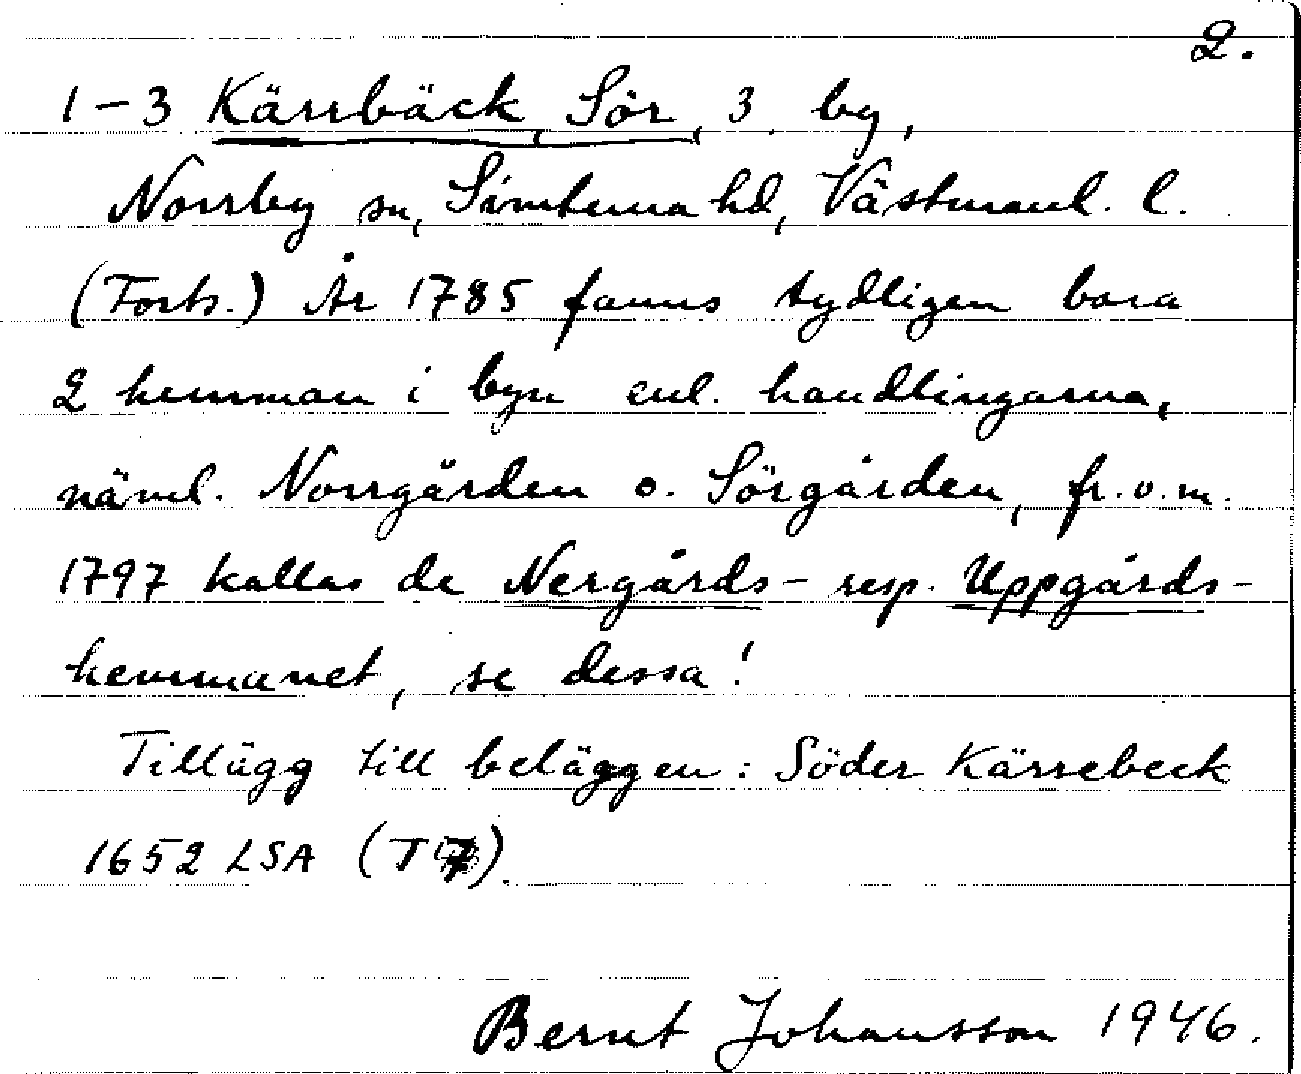 2.
1-3 Kärrbäck, Sör, 3 by,
Norrby sn, Simtuna hd, Västmanl. l.
(Forts.) År 1785 fanns tydligen bara
2 hemman i byn enl. handlingarna,
näml. Norrgården o. Sörgården, fr.o.m.
1797 kallas de Nergårds- resp. Uppgårds-
hemmanet, se dessa!
Tillägg till beläggen: Söder Kärrebeck
1652 LSA (T 7).
Bernt Johansson 1946.